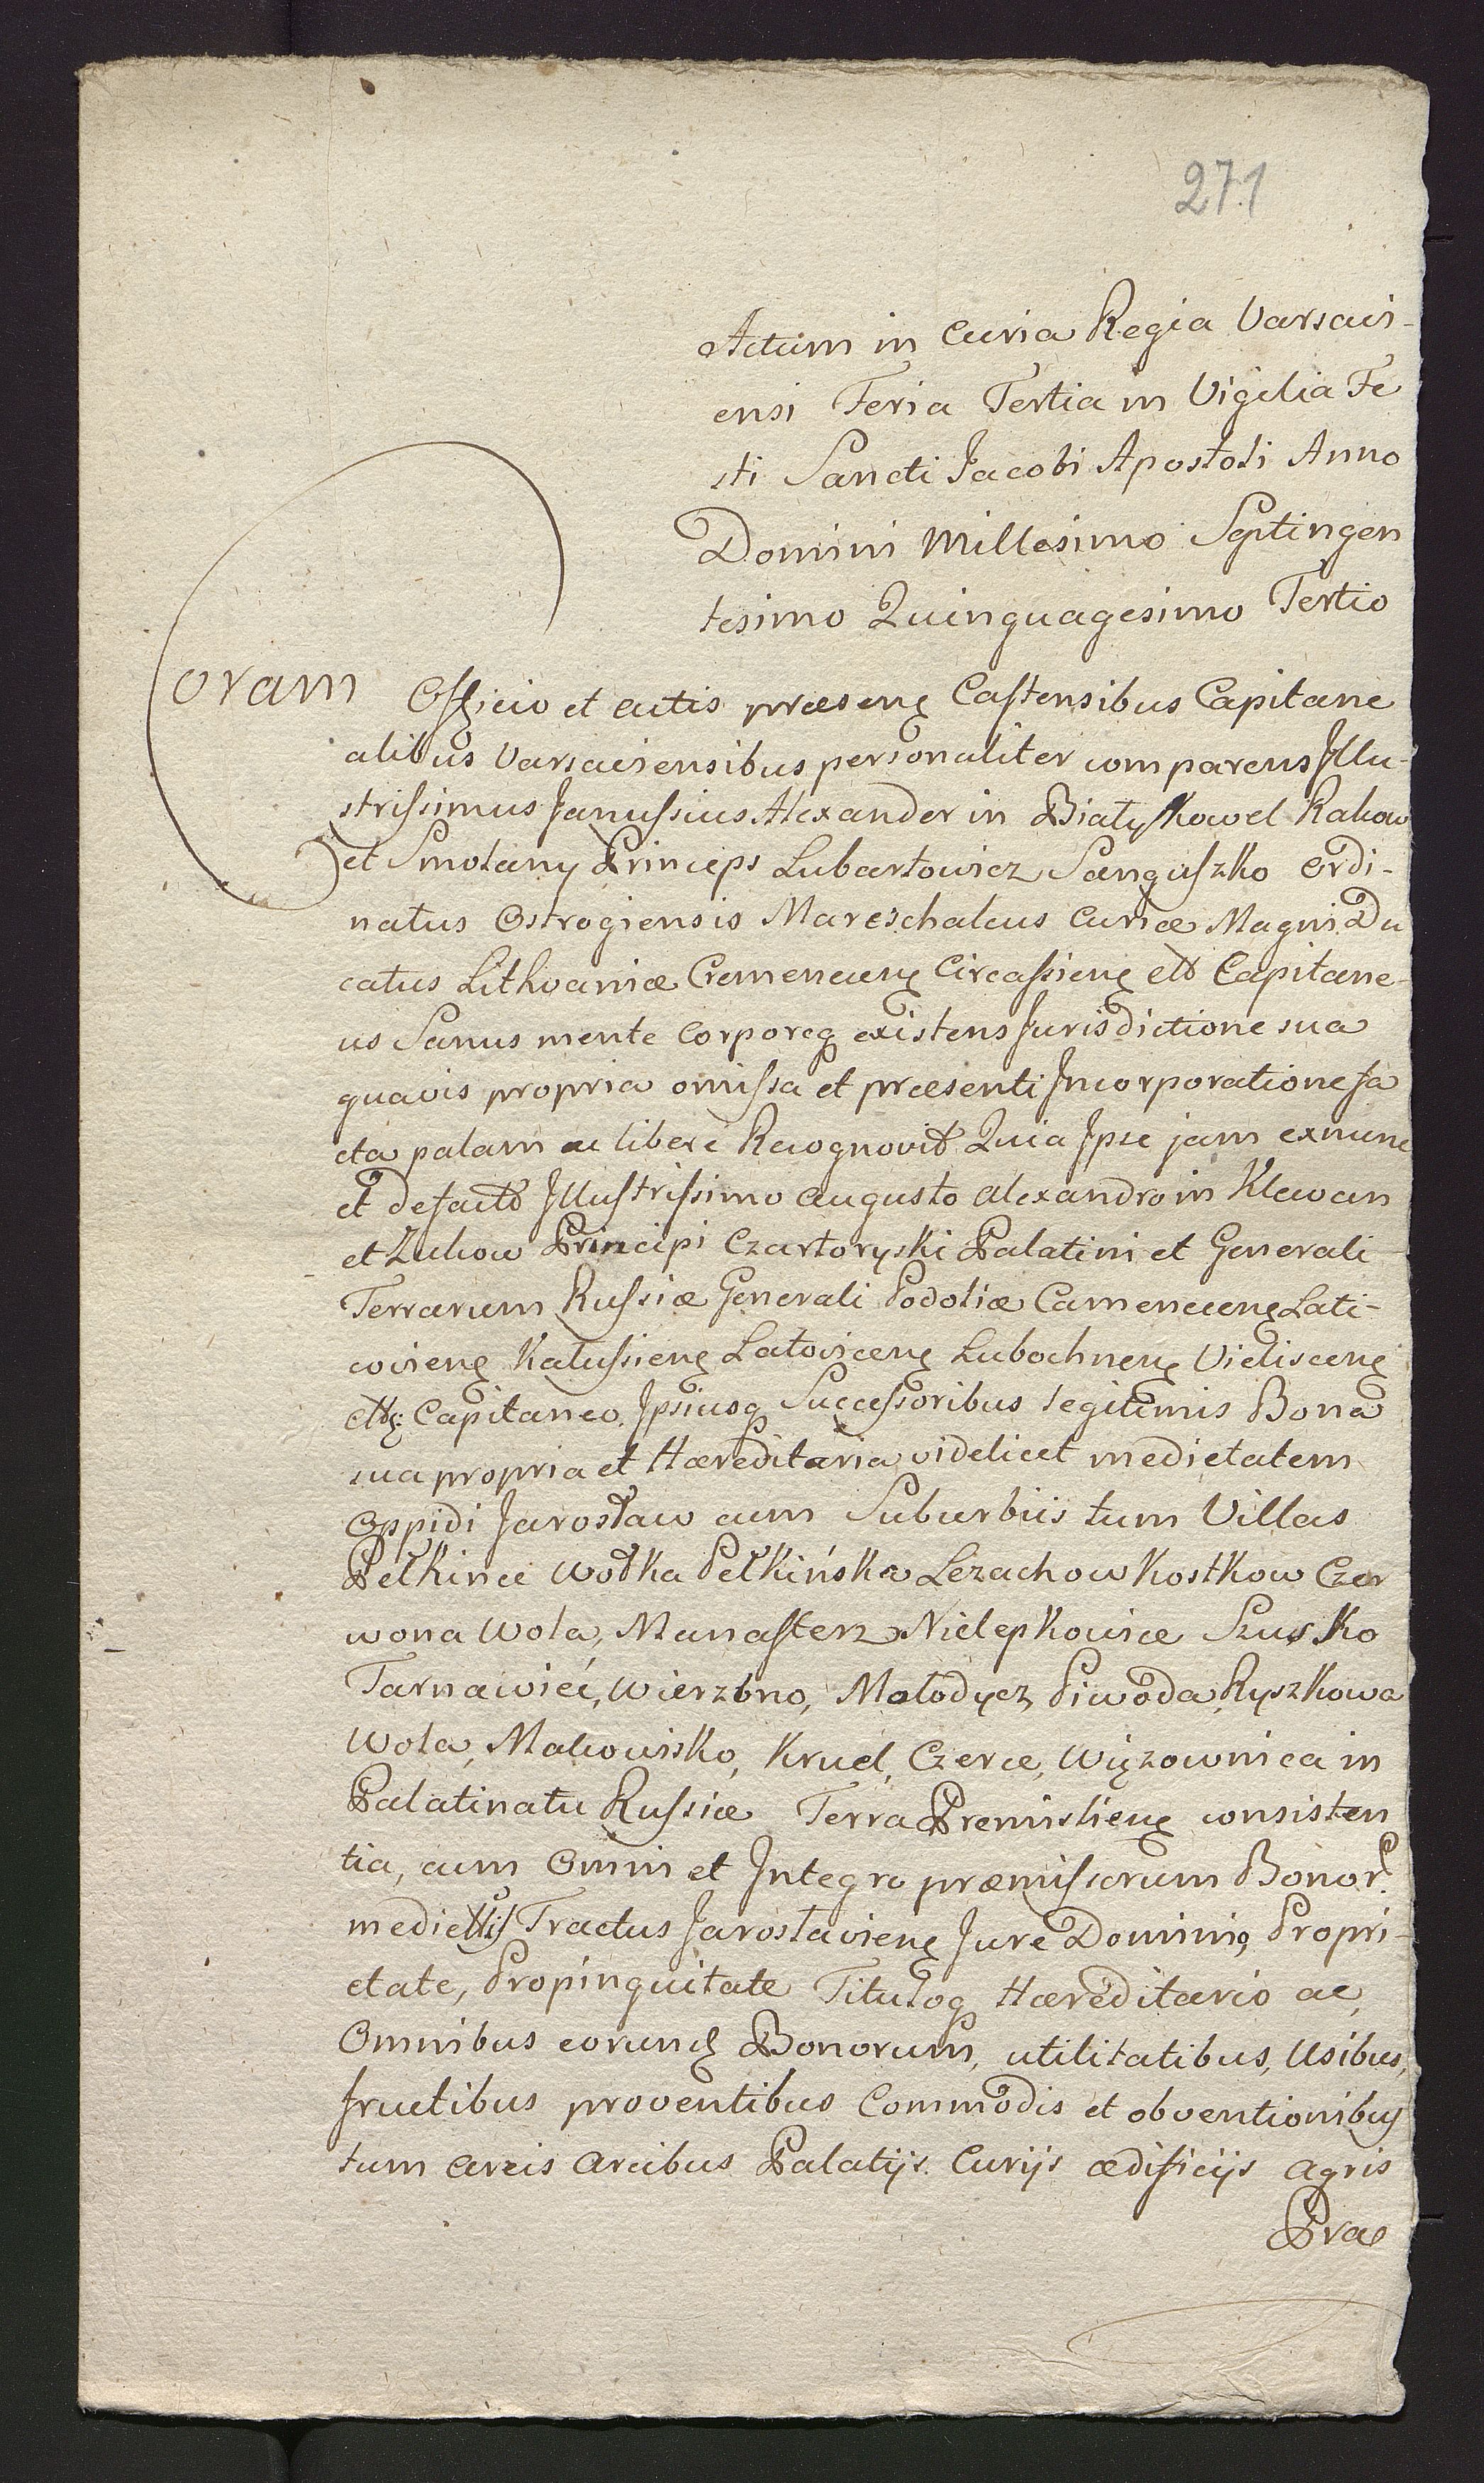 271
Actum in Curia Regia Varsavi-
ensi Feria Tertia in Vigilia Fe
sti Sancti Jacobi Apostoli Anno
Domini Millesimo Septingen
tesimo Quinquagesimo Tertio
Coram Officio et actis præsenę Castensibus Capitane
alibus Varsaviensibus personaliter comparens Illu-
strissimus Janussius Alexander in Biały Kowel Rakow
et Smolany Princeps Lubartowicz Sanguszko Ordi-
natus Ostrogiensis Mareschalcus Curiæ Magni Du
catus Lithvaniæ Cremenecenę Circassienę ett Capitane-
us Sanus mente Corporeq existens Jurisdictione sua
quavis propria omissa et præsenti Incorporatione fa
cta palam ac libere Recognovit Quia Ipse jam exnunc
et defacto Illustrissimo Augusto Alexandro in Klewan
et Zukow Principi Czartoryski Palatini et Generali
Terrarum Russiæ Generali Podoliæ Camenecenę Lati-
covienę Kałussienę Latovicenę Lubochnenę Vieliscenę
ettę: Capitaneo. Ipsiusq Successoribus legitimis Bona
sua propria et Hæreditaria videlicet medietatem
Oppidi Jarosław cum Suburbiis tum Villas
Pełkinie Wołka Pełkińska Lezachow Kostkow Czer
wona Wola, Manasterz Nielepkowice Szusko
Tarnawieć, Wierzbno, Mołodycz, Piwoda, Ryszkowa
Wola, Makowisko, Kruel, Czerce, Wiązownica in
Palatinatu Russiæ Terra Premislienę consisten
tia, cum Omni et Integro præmissorum Bonor
mediettis Tractus Jaroslavienę Jure Dominio, Propri-
etate, Propinquitate Tituloq Hæreditario ac,
Omnibus eorundę Bonorum, utilitatibus, Usibus,
fructibus proventibus Commodis et obventionibus
tum areis arcibus Palatijs. Curijs ædificijs agris
Præ